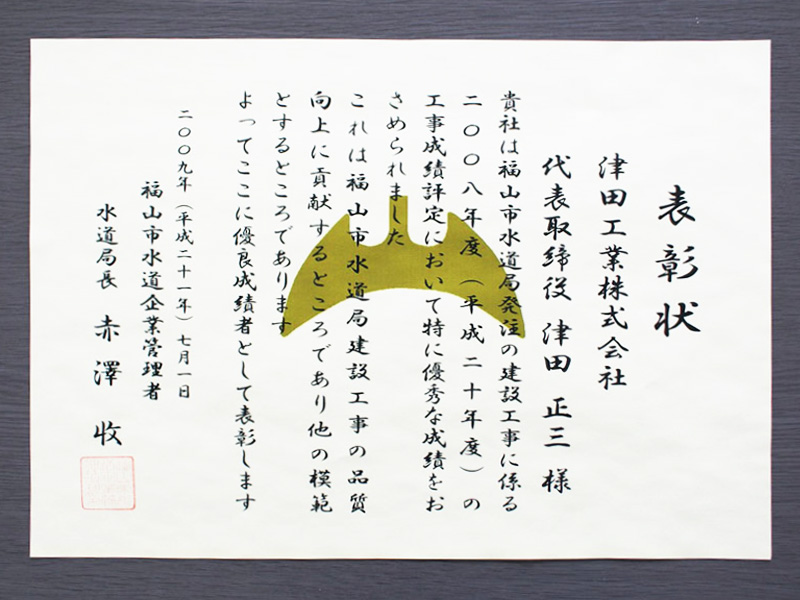 表彰状
津田工業株式会社
代表取締役 津田 正三 様
貴社は福山市水道局発注の建設工事に係る
二〇〇八年度（平成二十年度）の
工事成績評定において特に優秀な成績をお
さめられました
これは福山市水道局建設工事の品質
向上に貢献するところであり他の模範
とするところであります
よってここに優良成績者として表彰します
二〇〇九年（平成二十一年）七月一日
福山市水道企業管理者
水道局長 赤澤 收